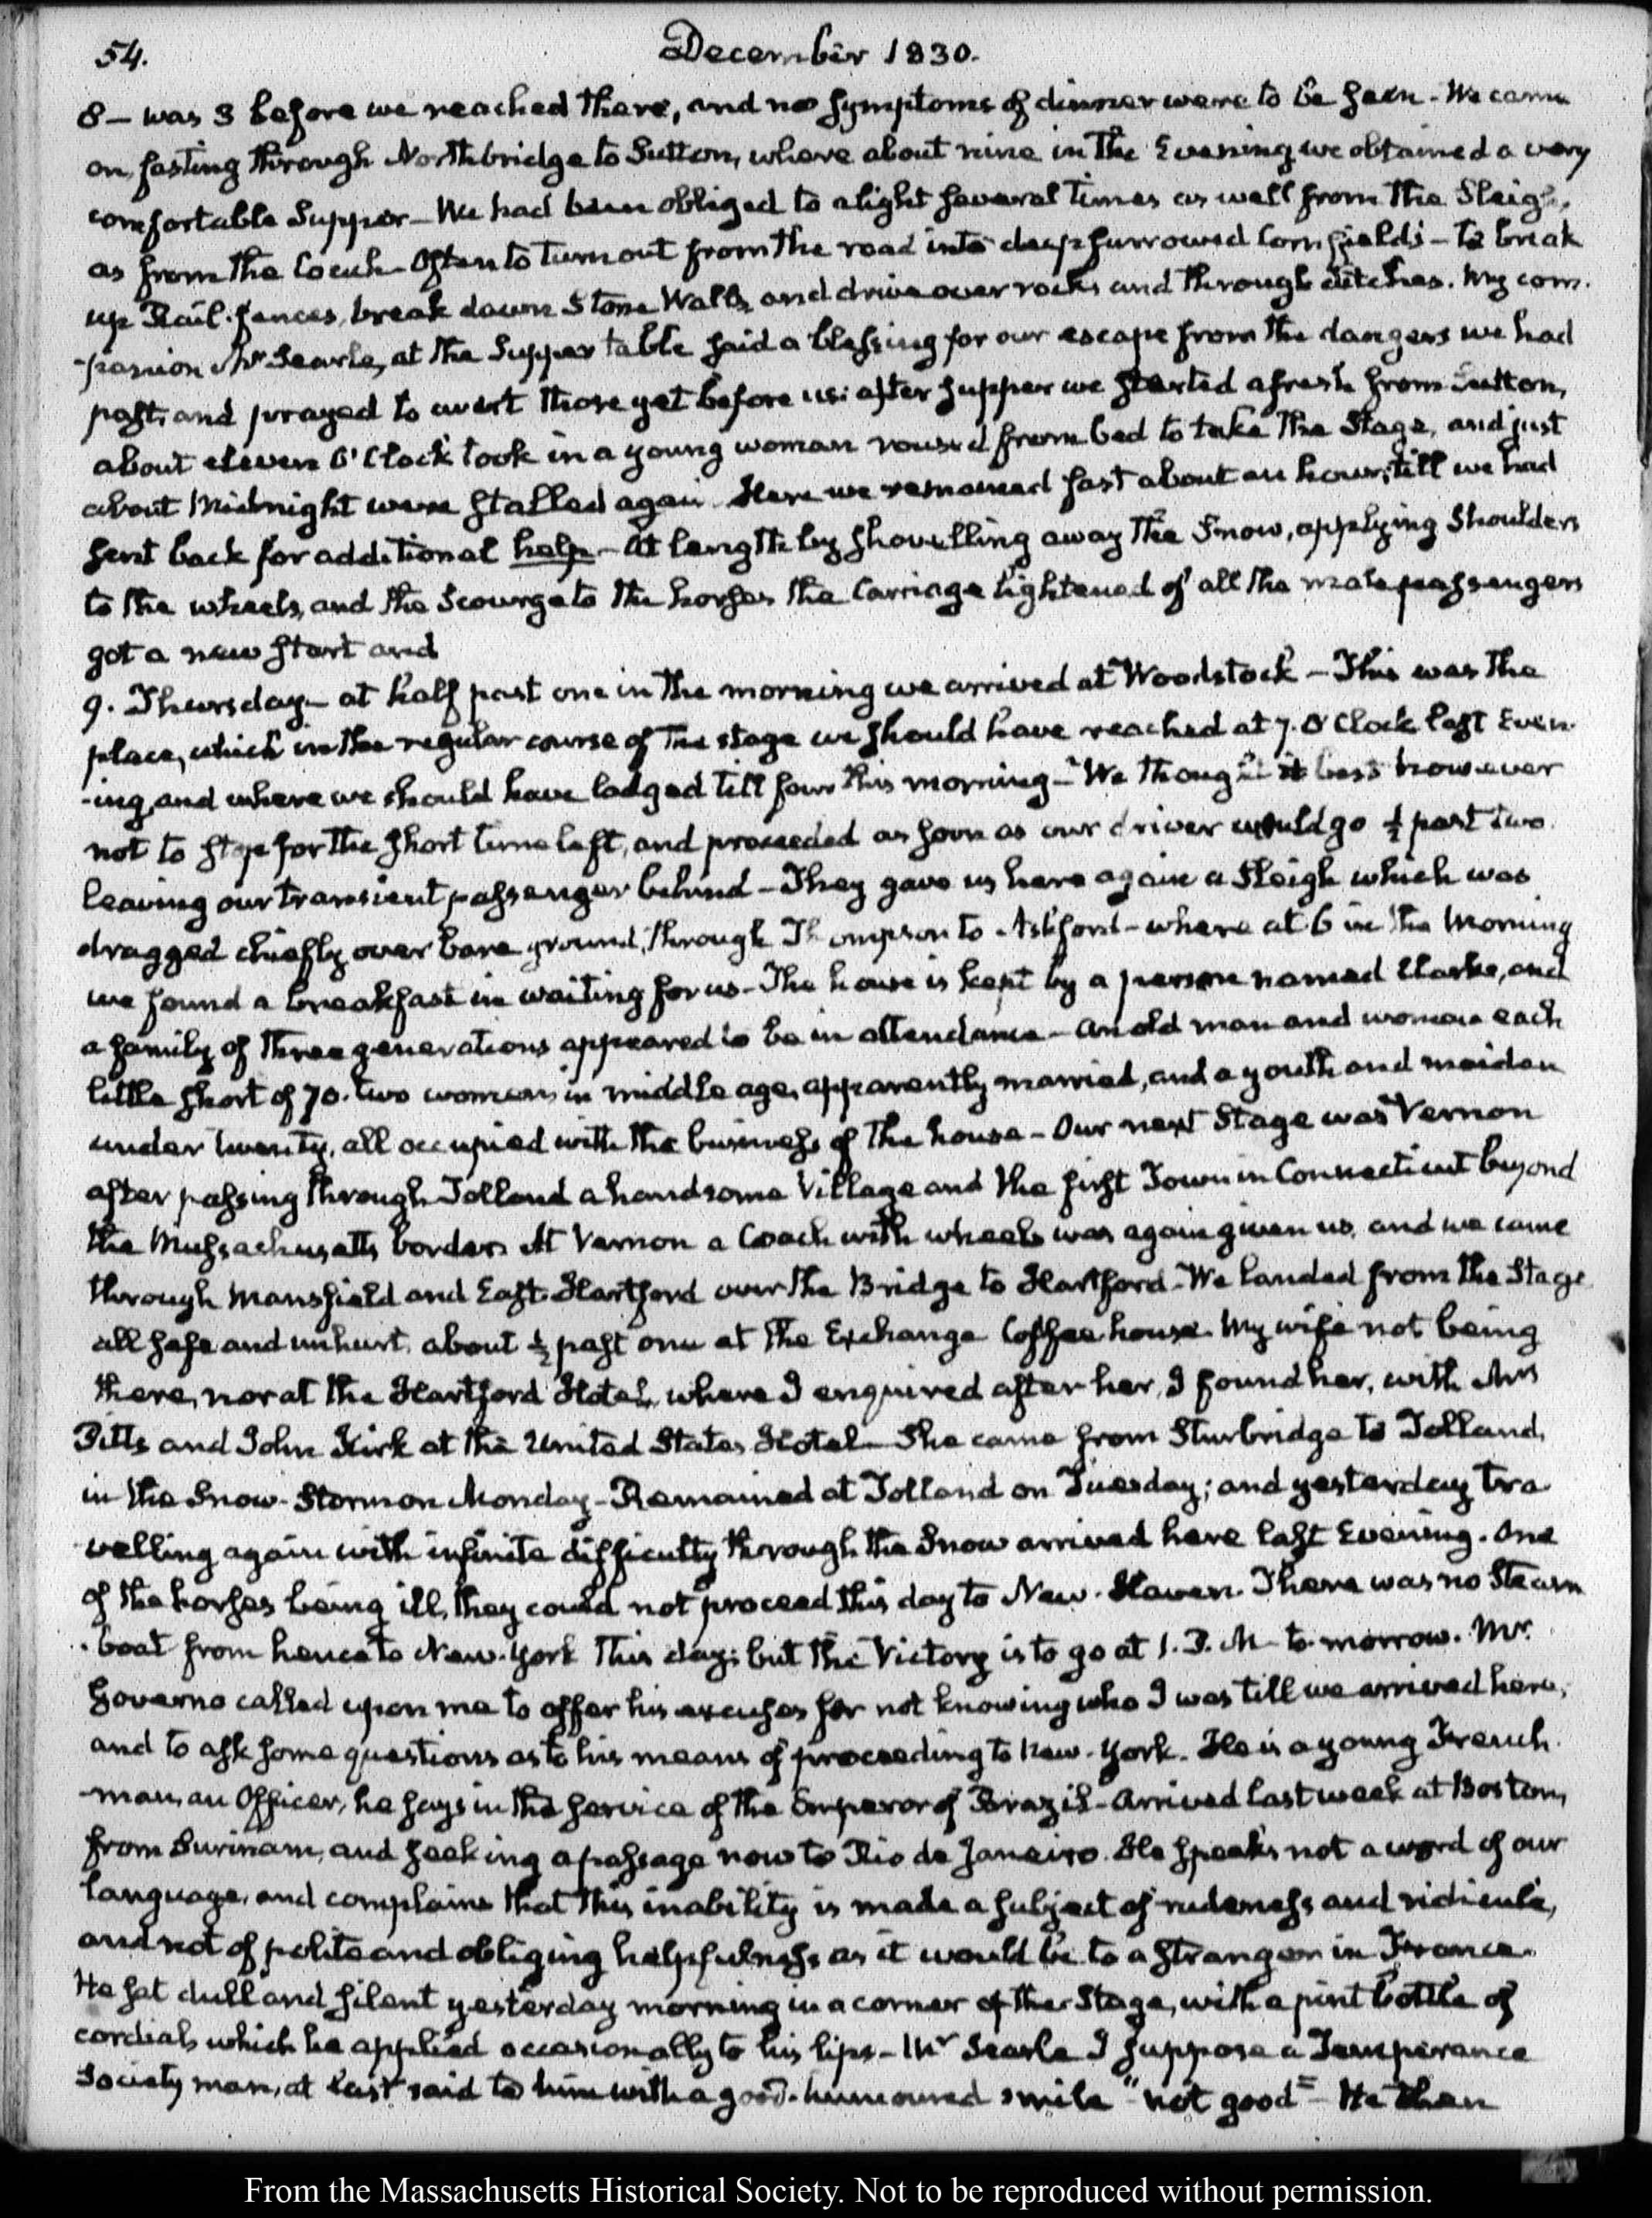 54.
December 1830.
8 – was 3 before we reached there, and no symptoms of dinner were to be seen – We came
on, fasting through Northbridge to Sutton, where about nine in the Evening we obtained a very
comfortable Supper – We had been obliged to alight several times as well from the Sleigh,
as from the Coach – Often to turn out from the road into deep furrowed Corn fields – to break
up Rail-fences, break down Stone Walls, and drive over rocks and through ditches. My com-
-panion Mr Searle, at the Supper table said a blessing for our escape from the dangers we had
past, and prayed to avert those yet before us: after supper we started afresh from Sutton,
about eleven O'Clock took in a young woman roused from bed to take the Stage, and just
about Midnight were stalled again. Here we remained fast about an hour, till we had
sent back for additional help – At length by shovelling away the Snow, applying Shoulders
to the wheels, and the Scourge to the horses the Carriage lightened of all the male passengers
got a new start and
9. Thursday – at half past one in the morning we arrived at Woodstock – This was the
place, which in the regular course of the stage we should have reached at 7. O'Clock last Even-
-ing, and where we should have lodged till four this morning – We thought it best however
not to stop for the short time left, and proceeded as soon as our driver would go ½ past two.
leaving our transient passenger behind – They gave us here again a Sleigh which was
dragged chiefly over bare ground, through Thompson to Ashford – where at 6 in the Morning
we found a breakfast in waiting for us – The house is kept by a person named Clarke, and
a family of three generations appeared to be in attendance – An old man and woman each
little short of 70. two women in middle age, apparently married, and a youth and maiden
under twenty, all occupied with the business of the house – Our next Stage was Vernon
after passing through Tolland a handsome Village and the first Town in Connecticut beyond
the Massachusetts borders. At Vernon a Coach with wheels was again given us, and we came
through Mansfield and East-Hartford over the Bridge to Hartford – We landed from the Stage
all safe and unhurt, about ½ past one at the Exchange Coffee house. My wife not being
there, nor at the Hartford Hotel, where I enquired after her, I found her, with Mrs
Pitts and John Kirk at the United States Hotel – She came from Sturbridge to Tolland,
in the Snow-Storm on Monday – Remained at Tolland on Tuesday; and yesterday tra
velling again with infinite difficulty through the Snow arrived here last Evening. One
of the horses being ill, they could not proceed this day to New-Haven. There was no Steam
-boat from hence to New-York this day; but the Victory is to go at 1. P.M. to-morrow. Mr.
Governo called upon me to offer his excuses for not knowing who I was till we arrived here;
and to ask some questions as to his means of proceeding to New-York. He is a young French-
-man, an Officer, he says in the service of the Emperor of Brazil – Arrived last week at Boston,
from Surinam, and seeking a passage now to Rio de Janeiro. He speaks not a word of our
language, and complains that this inability is made a subject of rudeness and ridicule,
and not of polite and obliging helpfulness as it would be to a stranger in France.
He sat dull and silent yesterday morning in a corner of the Stage, with a pint bottle of
cordial, which he applied occasionally to his lips – Mr Searle I suppose a Temperance
Society man, at last said to him with a good-humoured smile "not good" – He then
From the Massachusetts Historical Society. Not to be reproduced without permission.